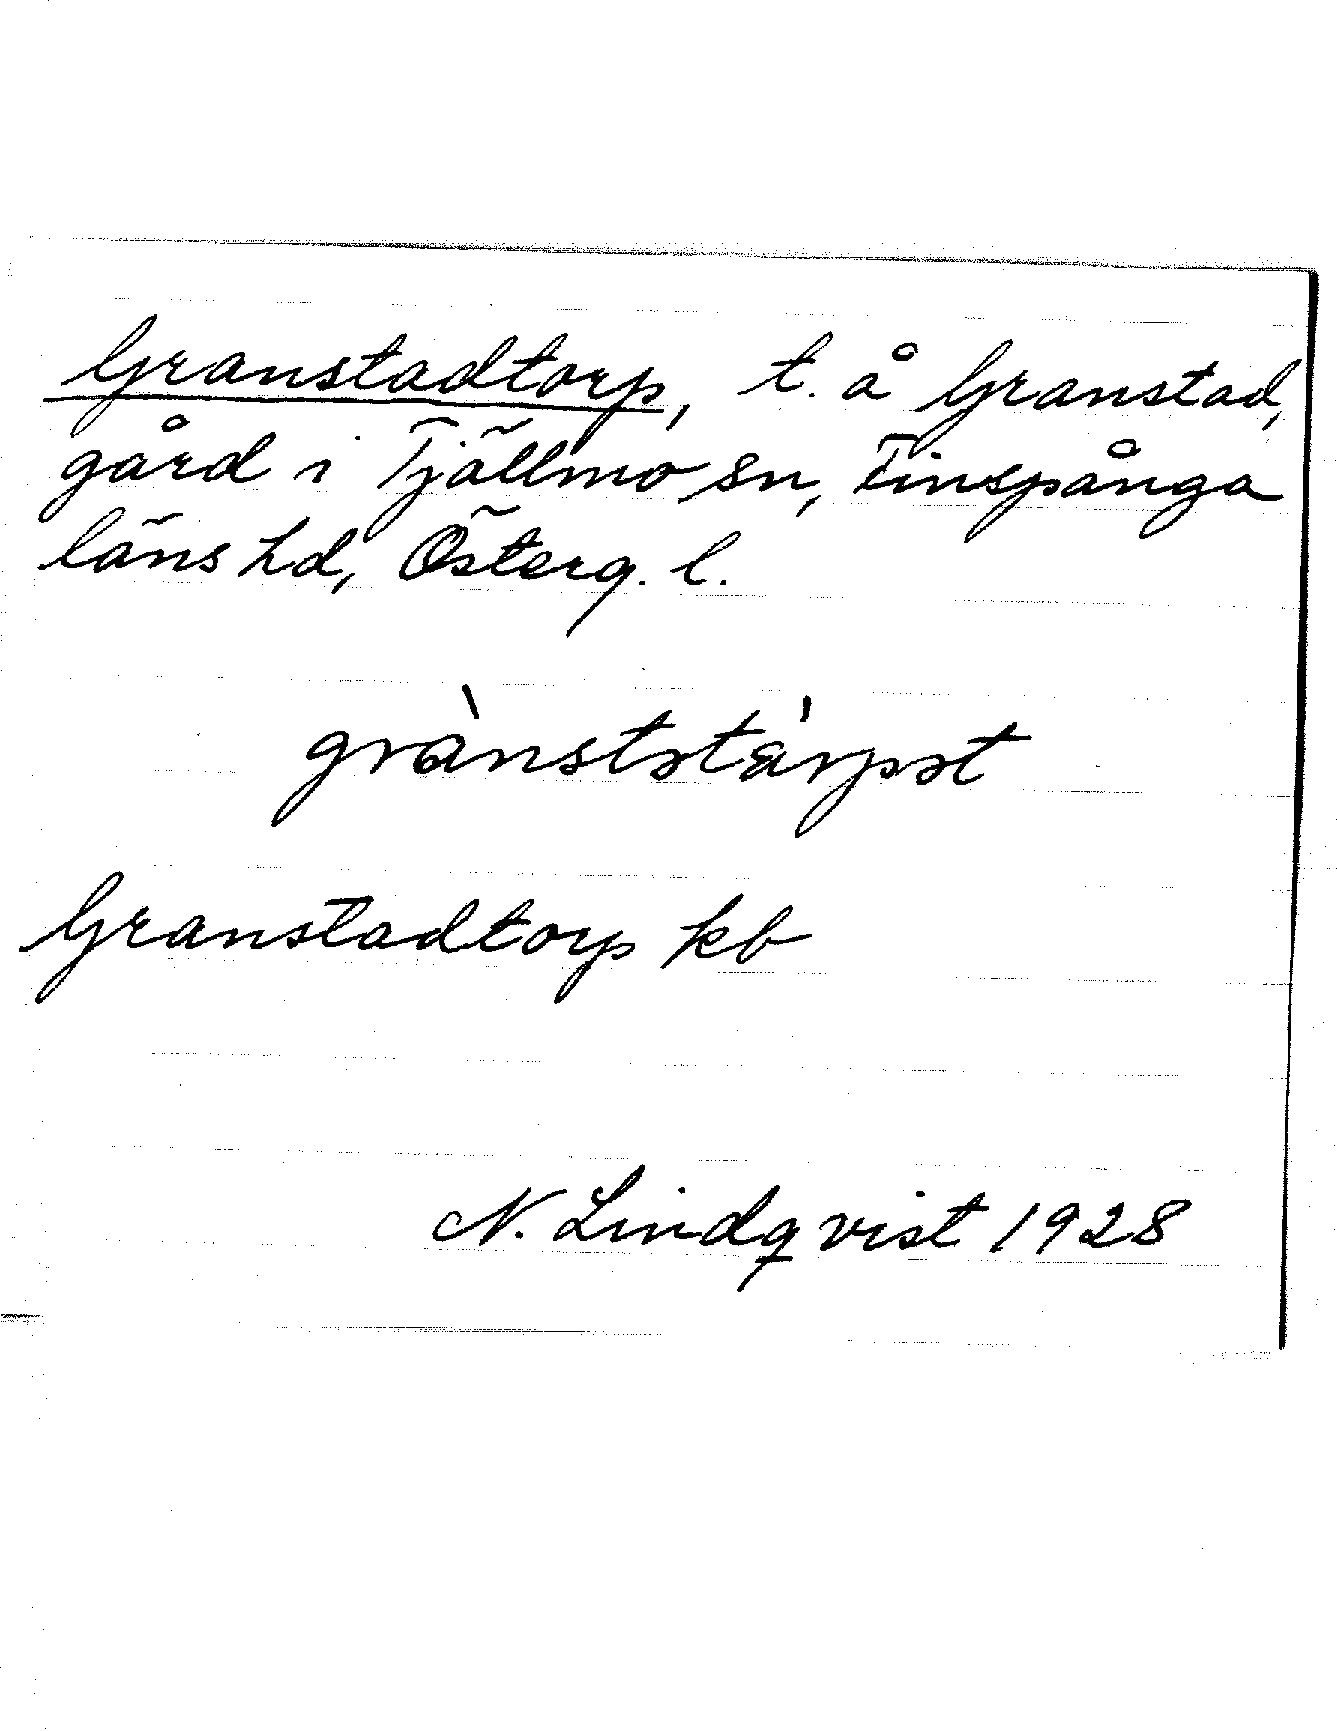 Granstadtorp, t. å Granstad,
gård i Tjällmo sn, Finspånga
läns hd, Österg. l.
grànststàrpət
Granstadtorp kb
N. Lindqvist 1928